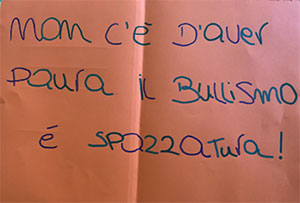 NON C'É D'AVER
PAURA iL BULLiSMO
É SPAZZATURA!